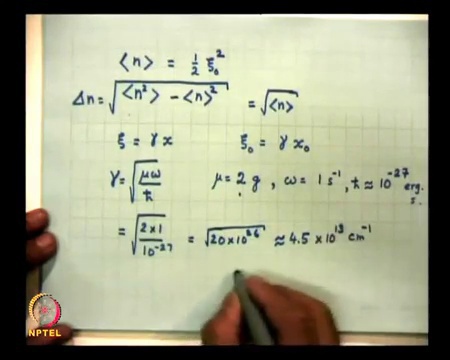 ⟨n⟩ = 1/2 ξ₀²
Δn = √(⟨n²⟩ − ⟨n⟩²) = √⟨n⟩
ξ = γx ξ₀ = γx₀
γ = √(μω/ħ) μ = 2 g, ω = 1 s⁻¹, ħ ≈ 10⁻²⁷ erg. s.
= √(2×1/10⁻²⁷) = √(20×10²⁶) ≈ 4.5 × 10¹³ cm⁻¹
NPTEL